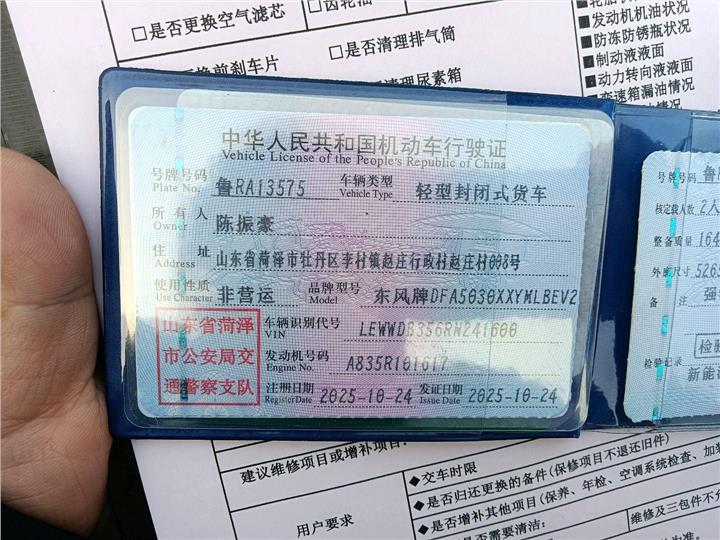 □是否更换空气滤芯
□齿轮油
□是否清理排气筒
更换前刹车片
清理尿素箱
■发动机机油状况
■防冻防锈瓶状况
■制动液液面
■动力转向液液面
■变速箱漏油情况
中华人民共和国机动车行驶证
Vehicle License of the People's Republic of China
号牌号码 Plate No. 鲁RA13575 车辆类型 Vehicle Type 轻型封闭式货车
所有人 Owner 陈振豪
住址 Address 山东省菏泽市牡丹区李村镇赵庄行政村赵庄村098号
使用性质 Use Character 非营运 品牌型号 Model 东风牌DFA5030XXYMLBEV2
山东省菏泽市公安局交通警察支队
车辆识别代号 VIN LEWWDB356RN241600
发动机号码 Engine No. A835R101617
注册日期 Register Date 2025-10-24 发证日期 Issue Date 2025-10-24
号牌号码 鲁
核定载人数 2人
整备质量 164
外廓尺寸 526
备注 强
检验
检验记录
新能
建议维修项目或增补项目:
用户要求
◆交车时限
◆是否归还更换的备件(保修项目不退还旧件)
◆是否增补其他项目(保养、年检、空调系统检查、加装
◆是否需要清洁:
维修及三包件不
为准。